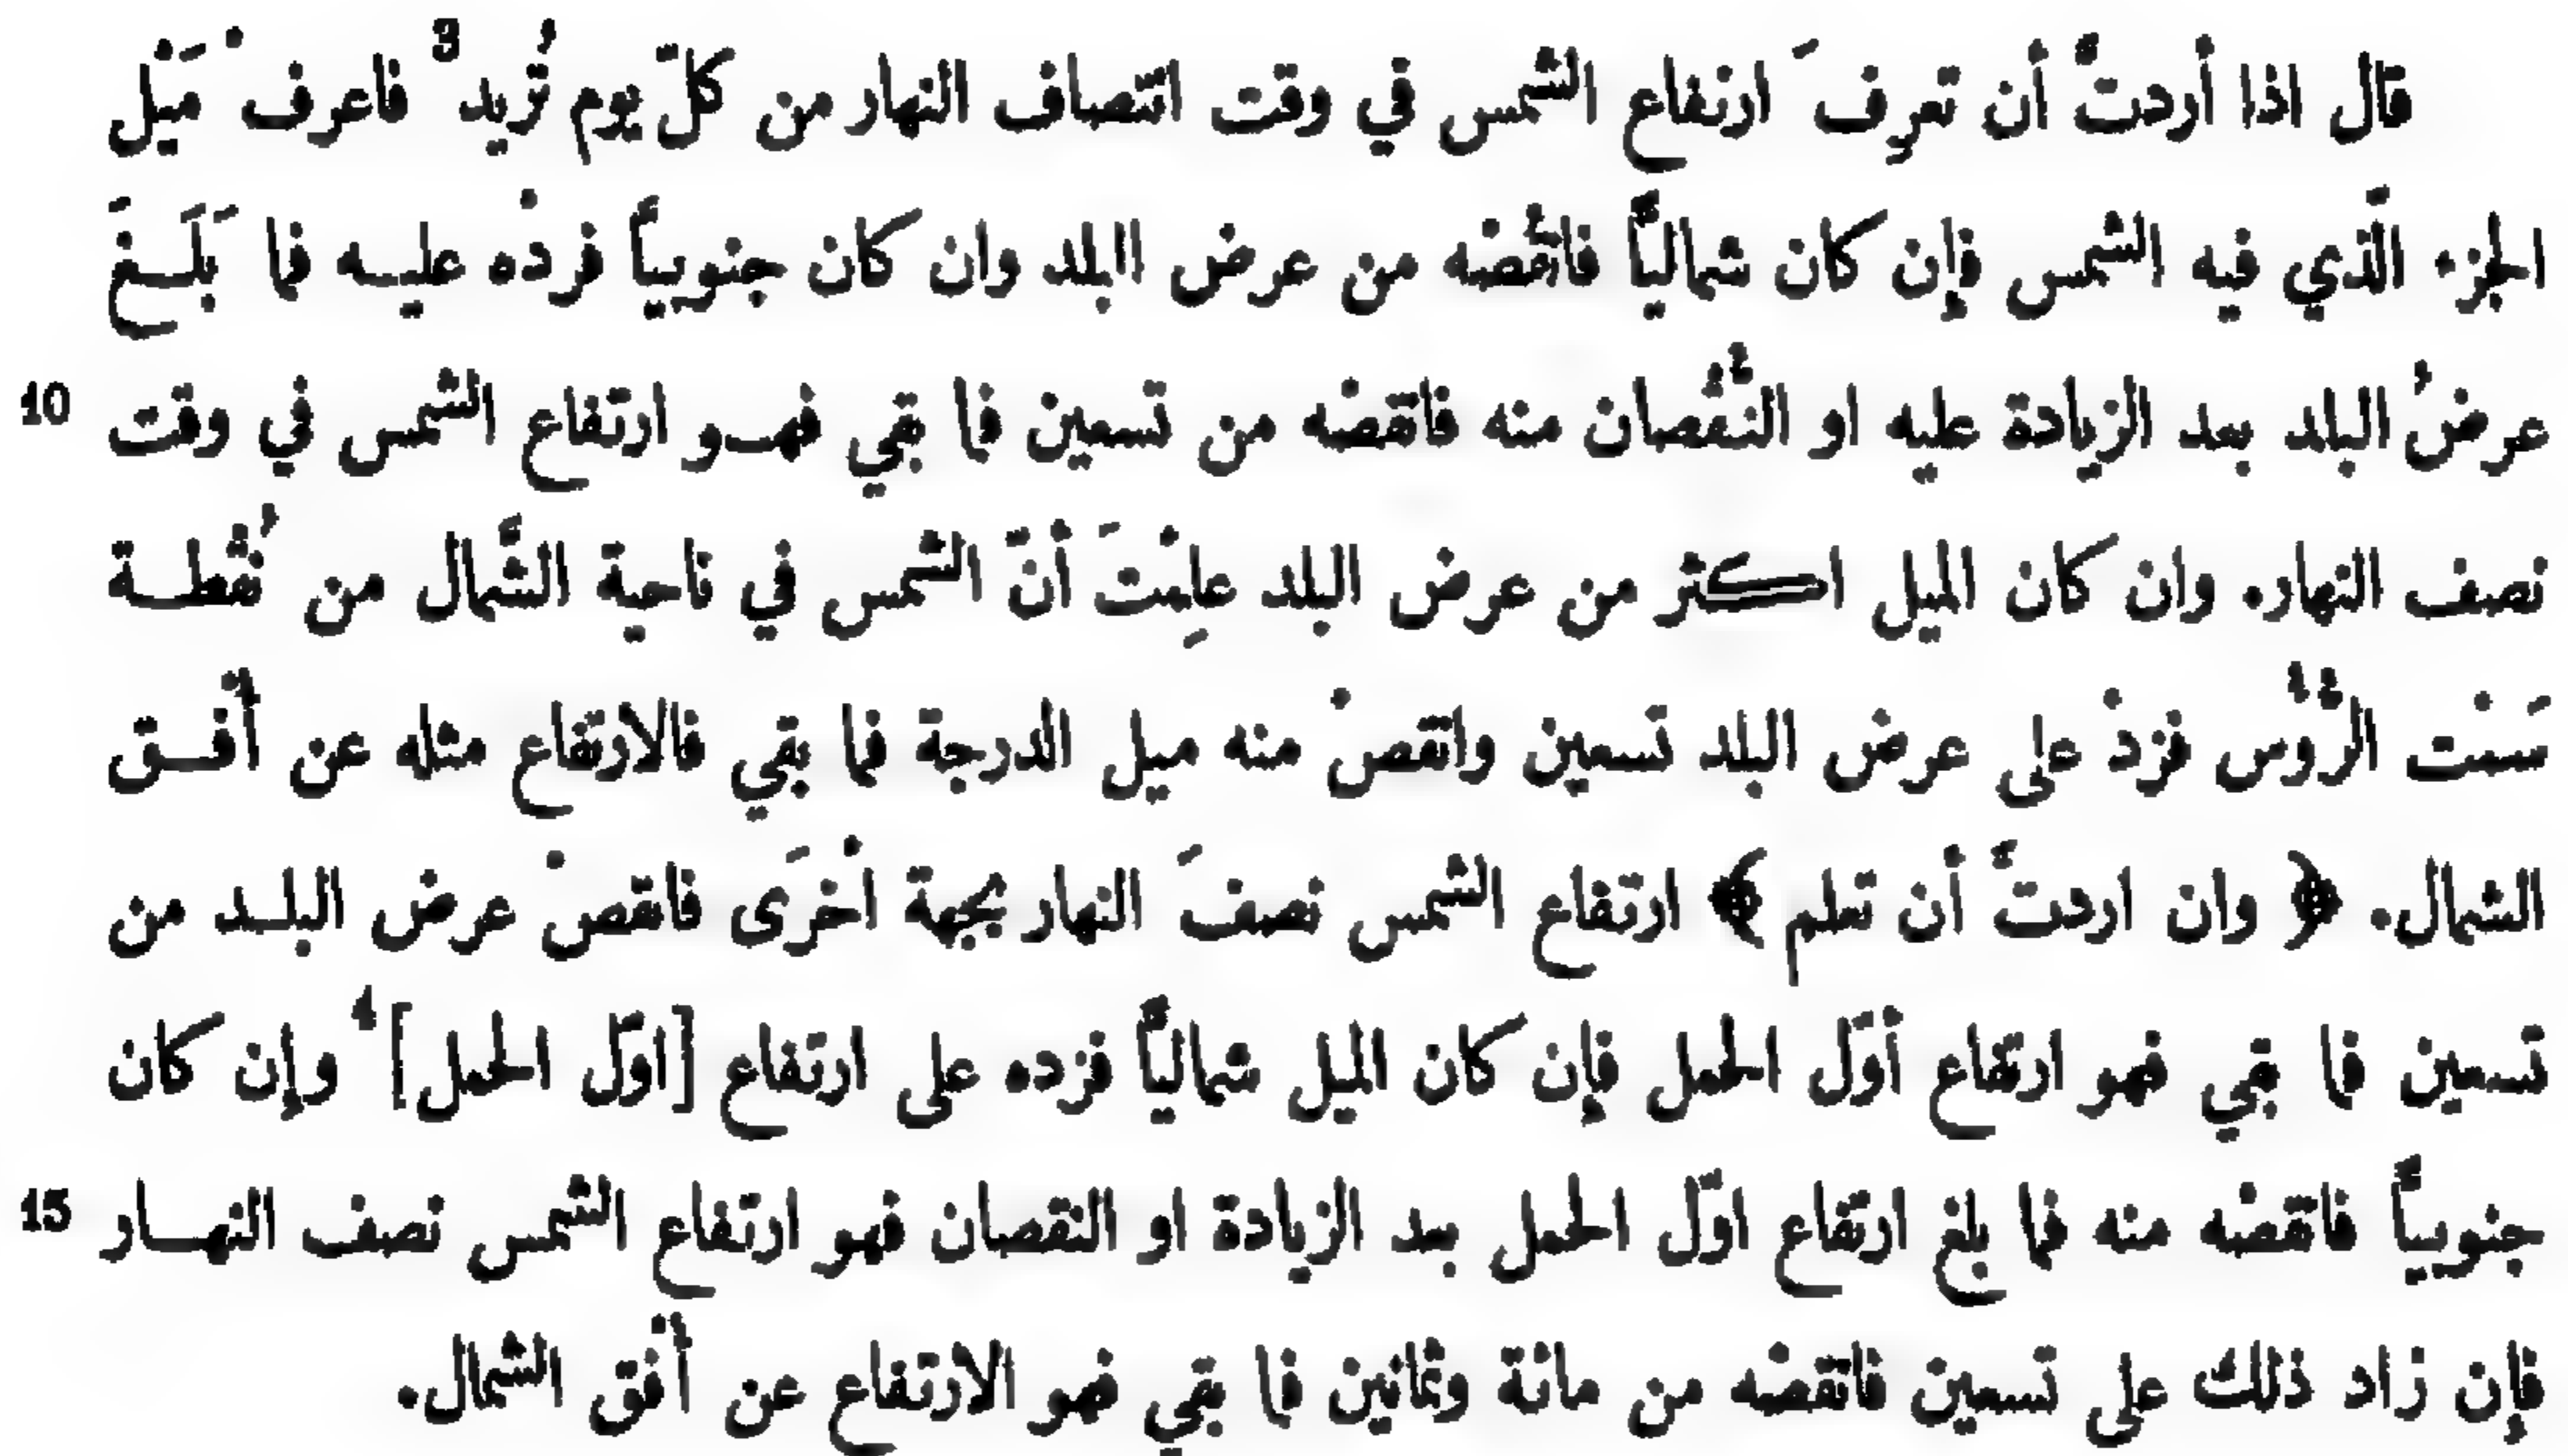 قال اذا أردتَّ أن تعرِفَ ارتفاع الشمس في وقت انتصاف النهار من كلّ يوم تُرِيد3 فاعرفْ مَيْل
الجزء الَّذي فيه الشمس فإن كان شماليًّا فانقُصْه من عرض البلد وان كان جنوبيًّا فزدْه عليه فما بَلَغَ
10 عرضُ البلد بعد الزيادة عليه او النُّقْصان منه فانقصْه من تسعين فما بقي فهو ارتفاع الشمس في وقت
نصف النهار. وان كان الميل اكثر من عرض البلد علِمْتَ أنّ الشمس في ناحية الشَّمال من نُقْطة
سَمْت الرُّؤُس فزدْ على عرض البلد تسعين وانقصْ منه ميل الدرجة فما بقي فالارتفاع مثله عن أُفْق
الشمال. ﴿ وان اردتَّ أن تعلم ﴾ ارتفاع الشمس نصفَ النهار بجهة اخْرَى فانقصْ عرض البلد من
تسعين فما بقي فهو ارتفاع أوّل الحمل فإن كان الميل شماليًّا فزده على ارتفاع [اوّل الحمل]4 وإن كان
15 جنوبيًّا فانقصْه منه فما بلغ ارتفاع اوّل الحمل بعد الزيادة او النقصان فهو ارتفاع الشمس نصف النهار
فإن زاد ذلك على تسعين فانقصْه من مائة وثمانين فما بقي فهو الارتفاع عن أُفْق الشمال.